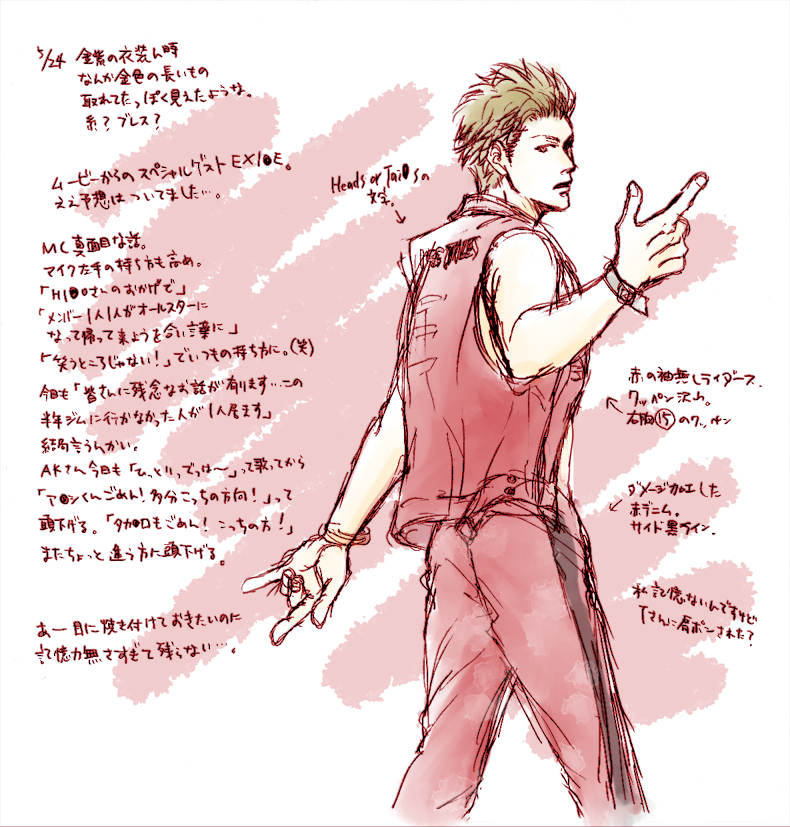 5/24 金紫の衣装ん時
なんか金色の長いもの
取れてたっぽく見えたような。
糸?ブレス?
ムービーからのスペシャルゲストEXI●E。
ええ予想はついてました…。
MC真面目な話。
マイク左手の持ち方も高め。
「HI●●さんのおかげで」
「メンバー1人1人がオールスターに
なって帰って来ようを合い言葉に」
「笑うところじゃない!」でいつもの持ち方に。(笑)
今日も「皆さんに残念なお話が有ります…この
半年ジムに行かなかった人が1人居ます」
結局言うんかい。
AKさん今日も「ひっといっでっは〜」って歌ってから
「ア●シくんごめん!多分こっちの方向!」って
頭下げる。「タカ●ロもごめん!こっちの方!」
またちょっと違う方に頭下げる。
あー目に焼き付けておきたいのに
記憶力無さすぎて残らない…。
Heads or Tai●sの
文字。
赤の袖無しライダース。
ワッペン沢山。
右胸⑮のワッペン
ダメージ加工した
赤デニム。
サイド黒ライン。
私記憶ないんですけど
Tさんに肩ポンされた?